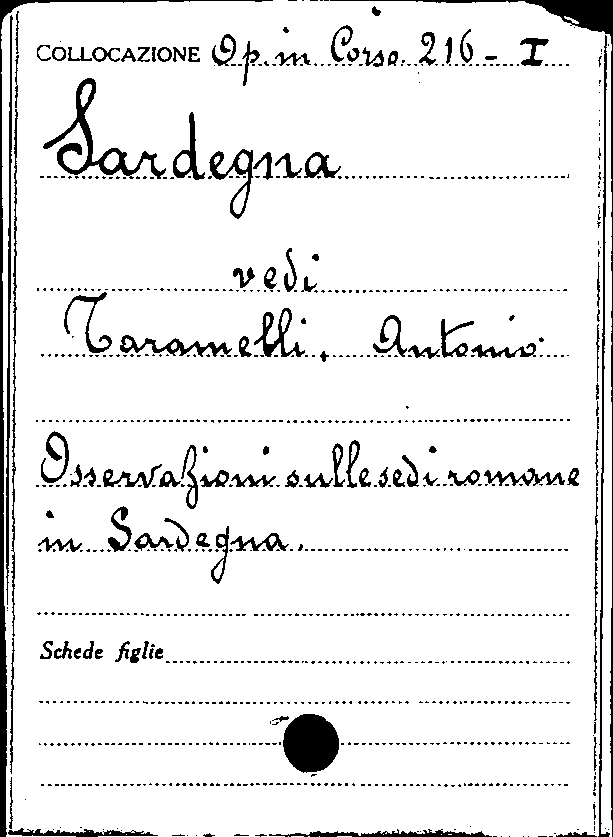 COLLOCAZIONE Op. in Corso. 216 - I
Sardegna
vedi
Taramelli, Antonio
Osservazioni sulle sedi romane
in Sardegna.
Schede figlie